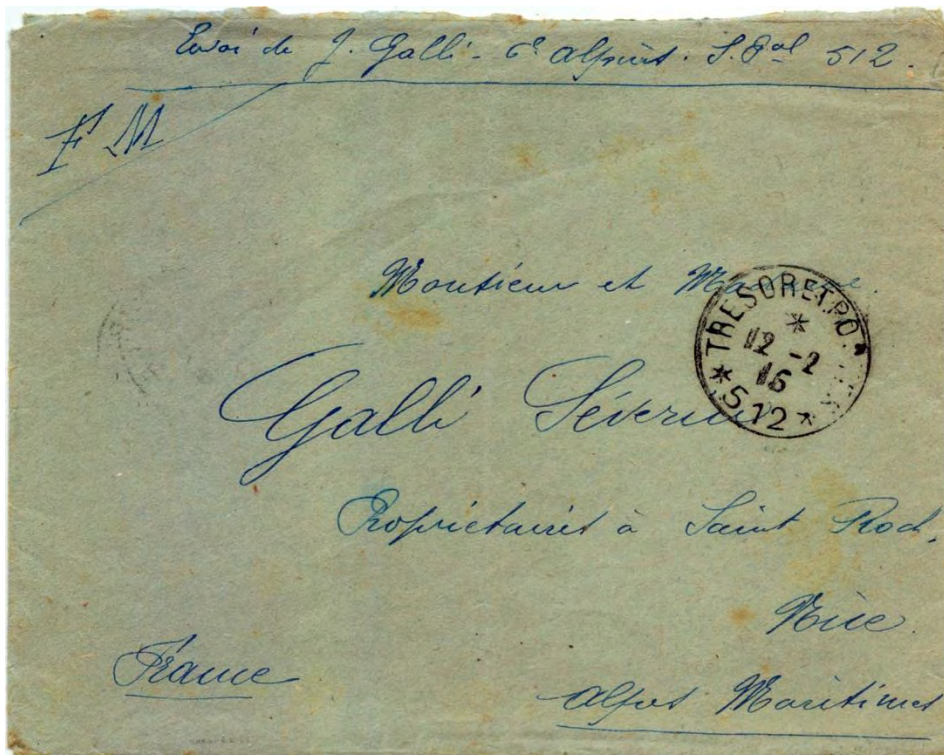 Envoi de J. Galli - 6e Alpins. S. Pal 512.
F M
Monsieur et Madame
TRESOR ET PO
12 -2
16
512
Galli Séverin
Propriétaires à Saint Roch.
Nice.
France
Alpes Maritimes